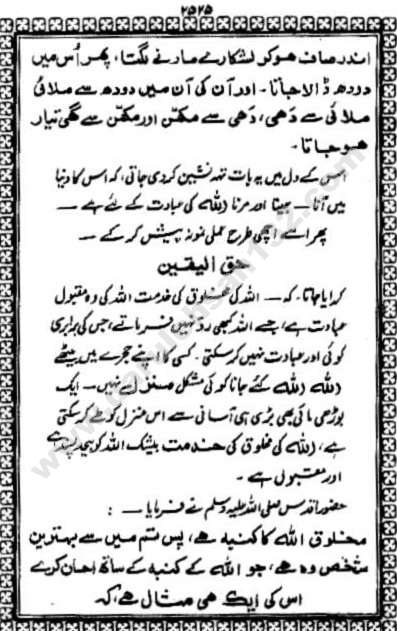 ۲۵۲۵
اندر صاف ہو کر لشکارے مارنے لگتا، پھر اُس میں
دودھ ڈالا جاتا۔ اور آن کی آن میں دودھ سے ملائی
ملائی سے دَھی، دَھی سے مکھن اور مکھن سے گھی تیار
ہو جاتا۔
اس کے دل میں یہ بات تہہ نشین کر دی جاتی، کہ اس کا دنیا
میں آنا — جینا اور مرنا اللہ کی عبادت کے لئے ہے —
پھر اسے اچھی طرح عملی نمونہ پیش کر کے —
حق الیقین
کرایا جاتا۔ کہ — اللہ کی مخلوق کی خدمت اللہ کی وہ مقبول
عبادت ہے، جسے اللہ کبھی رد نہیں فرماتے، جس کی برابری
کوئی اور عبادت نہیں کر سکتی۔ کسی کا اپنے حجرے میں بیٹھے
اللہ اللہ کئے جانا کوئی مشکل منزل نہیں — ایک
بوڑھی مائی بھی بڑی ہی آسانی سے اس منزل کو طے کر سکتی
ہے، اللہ کی مخلوق کی خدمت بیشک اللہ کو بیحد پسند ہے
اور مقبول ہے۔
حضور اقدس صلی اللہ علیہ وسلم نے فرمایا — :
مخلوق اللہ کا کنبہ ہے، پس تم میں سے بہترین
شخص وہ ہے، جو اللہ کے کنبہ کے ساتھ احسان کرے
اس کی ایک ھی مثال ہے، کہ